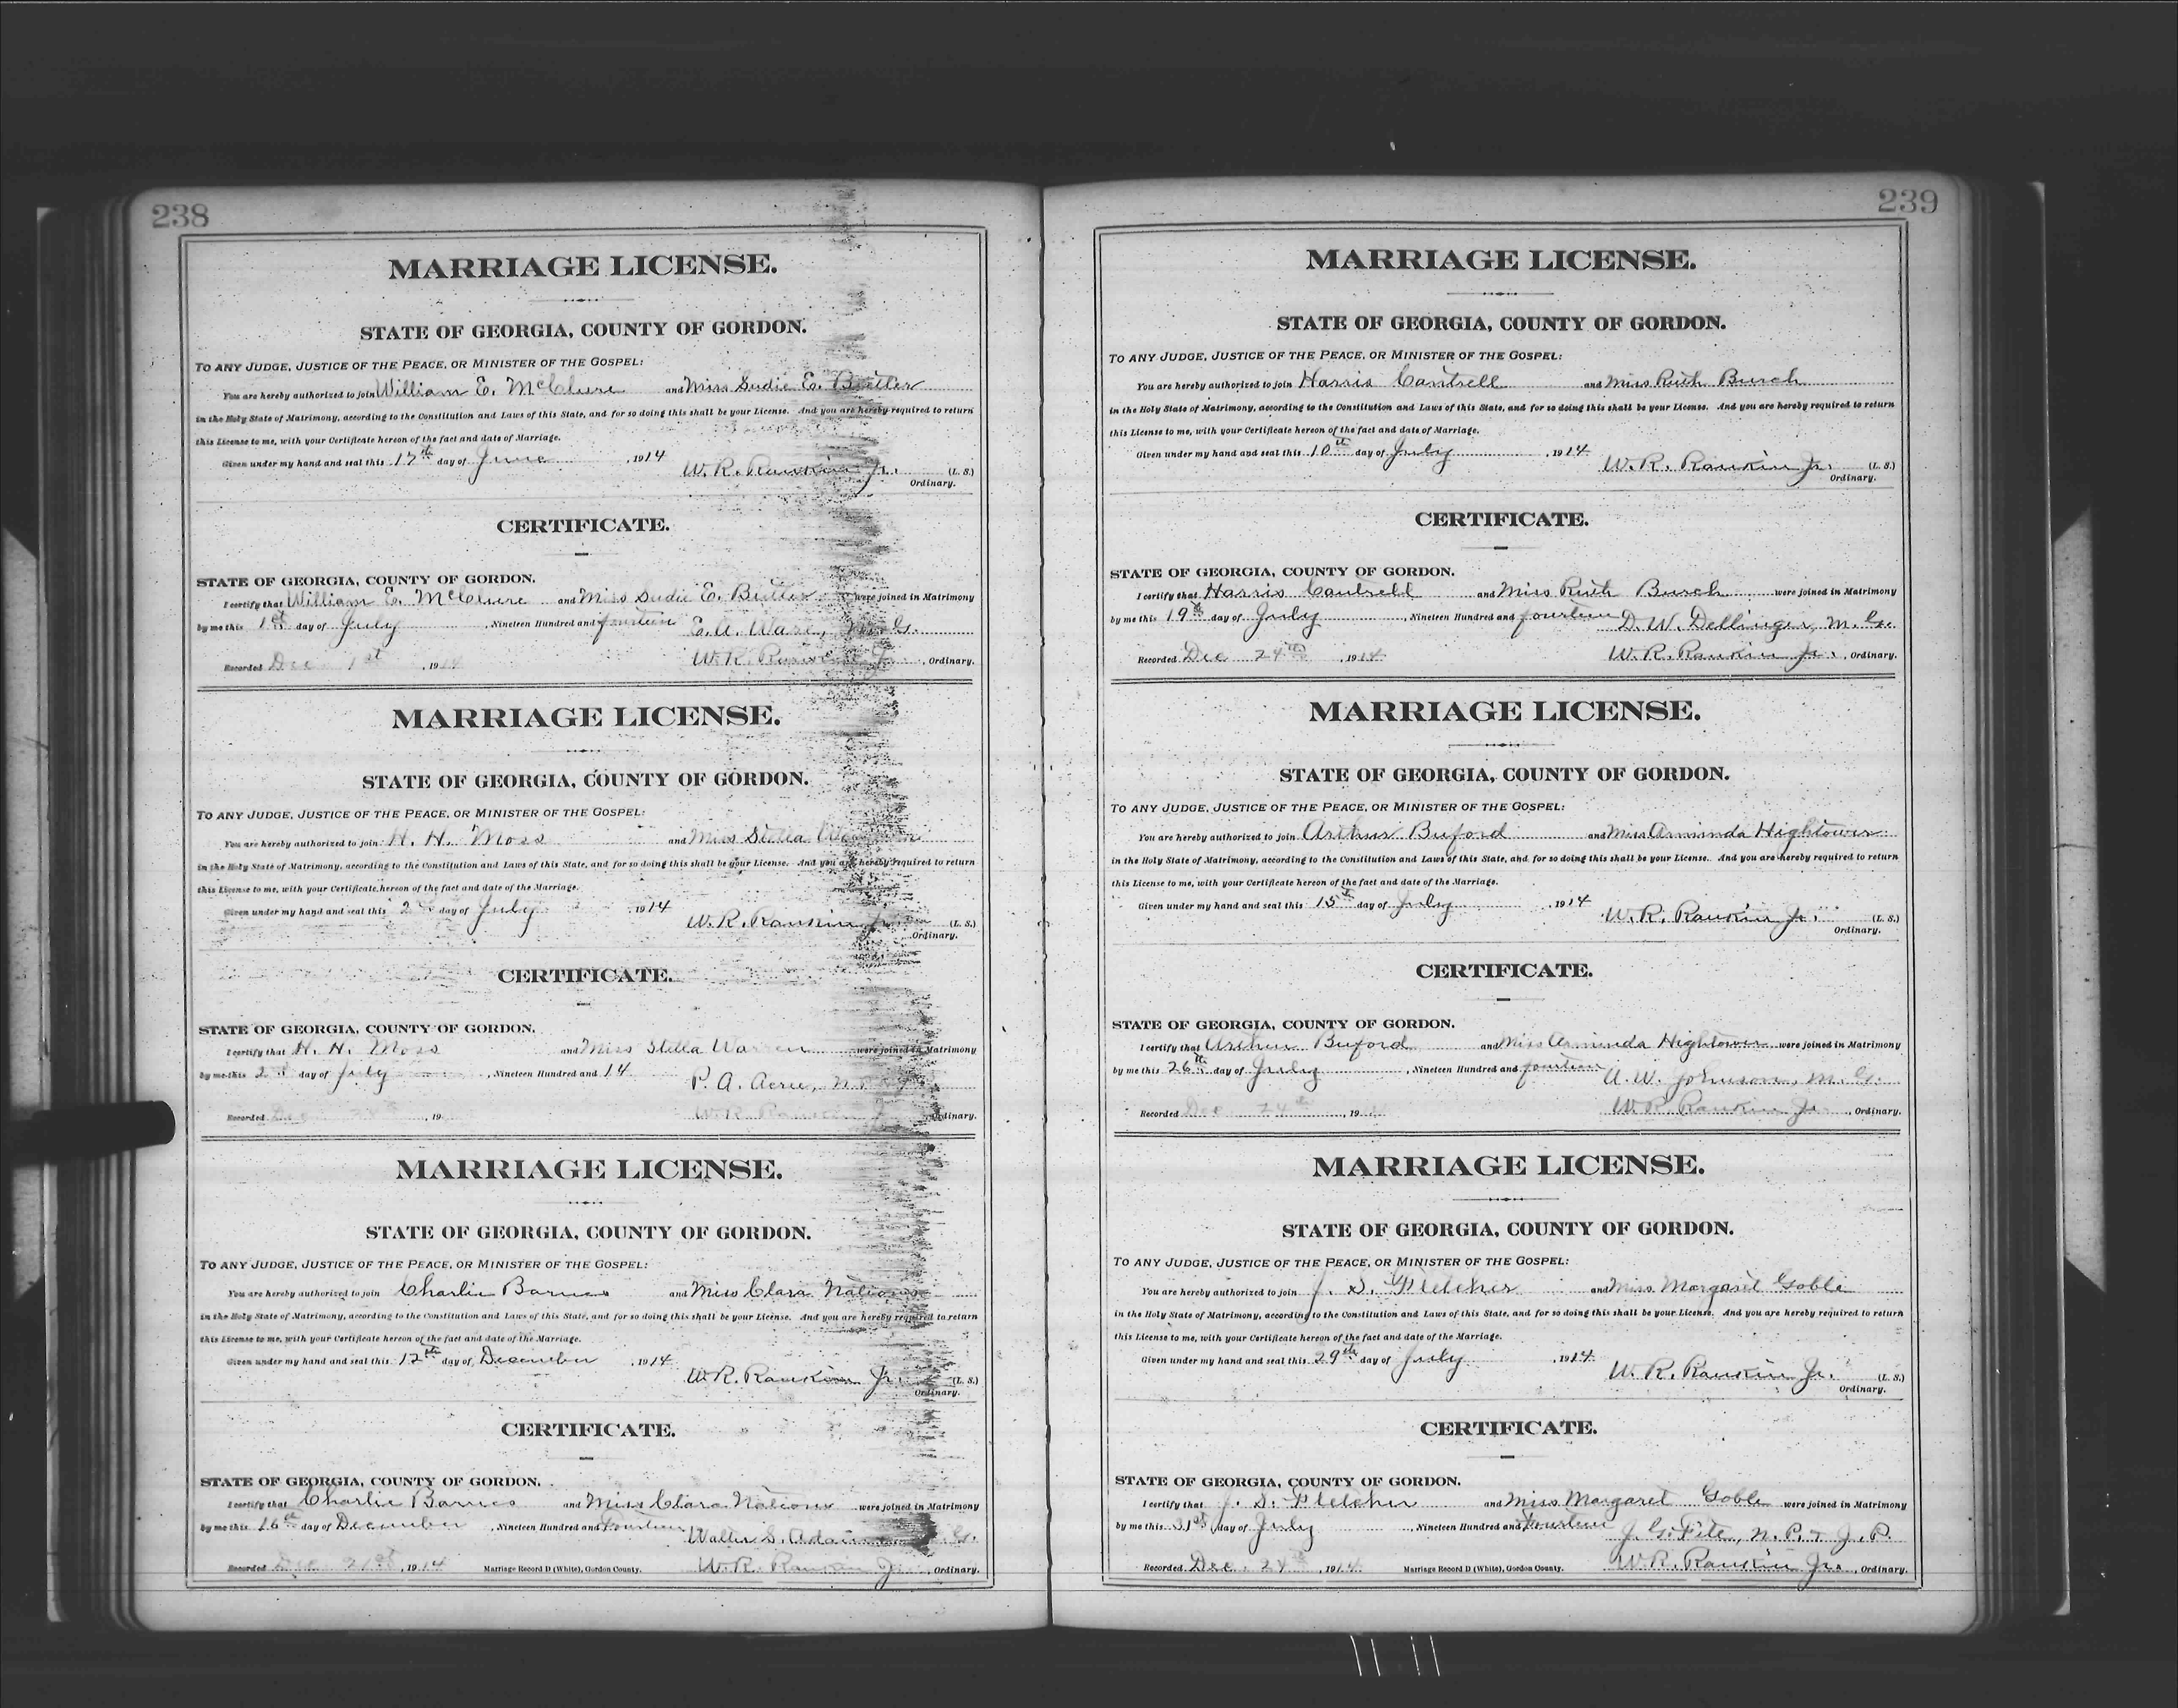 238
MARRIAGE LICENSE.
STATE OF GEORGIA, COUNTY OF GORDON.
TO ANY JUDGE, JUSTICE OF THE PEACE, OR MINISTER OF THE GOSPEL:
You are hereby authorized to join William E. McClure and Miss Sudie E. Butler
in the Holy State of Matrimony, according to the Constitution and Laws of this State, and for so doing this shall be your License. And you are hereby required to return
this License to me, with your Certificate hereon of the fact and date of Marriage.
Given under my hand and seal this 17th day of June, 1914
W. R. Rankin Jr. (L. S.)
Ordinary.
CERTIFICATE.
STATE OF GEORGIA, COUNTY OF GORDON.
I certify that William E. McClure and Miss Sudie E. Butler were joined in Matrimony
by me this 1st day of July, Nineteen Hundred and fourteen E. A. Ware, M. G.
Recorded Dec 1st, 1914 W. R. Rankin Jr., Ordinary.
MARRIAGE LICENSE.
STATE OF GEORGIA, COUNTY OF GORDON.
TO ANY JUDGE, JUSTICE OF THE PEACE, OR MINISTER OF THE GOSPEL:
You are hereby authorized to join H. H. Moss and Miss Stella
in the Holy State of Matrimony, according to the Constitution and Laws of this State, and for so doing this shall be your License. And you are hereby required to return
this License to me, with your Certificate hereon of the fact and date of the Marriage.
Given under my hand and seal this 2 day of July, 1914
W. R. Rankin Jr. (L. S.)
Ordinary.
CERTIFICATE.
STATE OF GEORGIA, COUNTY OF GORDON.
I certify that H. H. Moss and Miss Stella Warren were joined in Matrimony
by me this 2 day of July, Nineteen Hundred and 14 P. A. Acree,
Recorded Dec 24th, 19 W. R. Rankin Ordinary.
MARRIAGE LICENSE.
STATE OF GEORGIA, COUNTY OF GORDON.
TO ANY JUDGE, JUSTICE OF THE PEACE, OR MINISTER OF THE GOSPEL:
You are hereby authorized to join Charlie Barnes and Miss Clara Nations
in the Holy State of Matrimony, according to the Constitution and Laws of this State, and for so doing this shall be your License. And you are hereby required to return
this License to me, with your Certificate hereon of the fact and date of the Marriage.
Given under my hand and seal this 12th day of December, 1914
W. R. Rankin Jr. (L. S.)
Ordinary.
CERTIFICATE.
STATE OF GEORGIA, COUNTY OF GORDON.
I certify that Charlie Barnes and Miss Clara Nations were joined in Matrimony
by me this 16th day of December, Nineteen Hundred and Fourteen Walter S. Adams G.
Recorded Dec 21st, 1914 Marriage Record D (White), Gordon County. W. R. Rankin Jr., Ordinary.
239
MARRIAGE LICENSE.
STATE OF GEORGIA, COUNTY OF GORDON.
TO ANY JUDGE, JUSTICE OF THE PEACE, OR MINISTER OF THE GOSPEL:
You are hereby authorized to join Harris Cantrell and Miss Ruth Burch
in the Holy State of Matrimony, according to the Constitution and Laws of this State, and for so doing this shall be your License. And you are hereby required to return
this License to me, with your Certificate hereon of the fact and date of Marriage.
Given under my hand and seal this 10th day of July, 1914
W. R. Rankin Jr. (L. S.)
Ordinary.
CERTIFICATE.
STATE OF GEORGIA, COUNTY OF GORDON.
I certify that Harris Cantrell and Miss Ruth Burch were joined in Matrimony
by me this 19th day of July, Nineteen Hundred and fourteen D. W. Dellinger, M. G.
Recorded Dec 24th, 1914 W. R. Rankin Jr., Ordinary.
MARRIAGE LICENSE.
STATE OF GEORGIA, COUNTY OF GORDON.
TO ANY JUDGE, JUSTICE OF THE PEACE, OR MINISTER OF THE GOSPEL:
You are hereby authorized to join Arthur Buford and Miss Arminda Hightower
in the Holy State of Matrimony, according to the Constitution and Laws of this State, and for so doing this shall be your License. And you are hereby required to return
this License to me, with your Certificate hereon of the fact and date of the Marriage.
Given under my hand and seal this 15th day of July, 1914
W. R. Rankin Jr. (L. S.)
Ordinary.
CERTIFICATE.
STATE OF GEORGIA, COUNTY OF GORDON.
I certify that Arthur Buford and Miss Arminda Hightower were joined in Matrimony
by me this 26th day of July, Nineteen Hundred and fourteen A. W. Johnson, M. G.
Recorded Dec 24th, 19 W. R. Rankin Jr, Ordinary.
MARRIAGE LICENSE.
STATE OF GEORGIA, COUNTY OF GORDON.
TO ANY JUDGE, JUSTICE OF THE PEACE, OR MINISTER OF THE GOSPEL:
You are hereby authorized to join J. S. Fletcher and Miss Margaret Goble
in the Holy State of Matrimony, according to the Constitution and Laws of this State, and for so doing this shall be your License. And you are hereby required to return
this License to me, with your Certificate hereon of the fact and date of the Marriage.
Given under my hand and seal this 29th day of July, 1914
W. R. Rankin Jr. (L. S.)
Ordinary.
CERTIFICATE.
STATE OF GEORGIA, COUNTY OF GORDON.
I certify that J. S. Fletcher and Miss Margaret Goble were joined in Matrimony
by me this 31st day of July, Nineteen Hundred and Fourteen J. G. Fite, N. P. & J. P.
Recorded Dec. 24th, 1914 Marriage Record D (White), Gordon County. W. R. Rankin Jr., Ordinary.